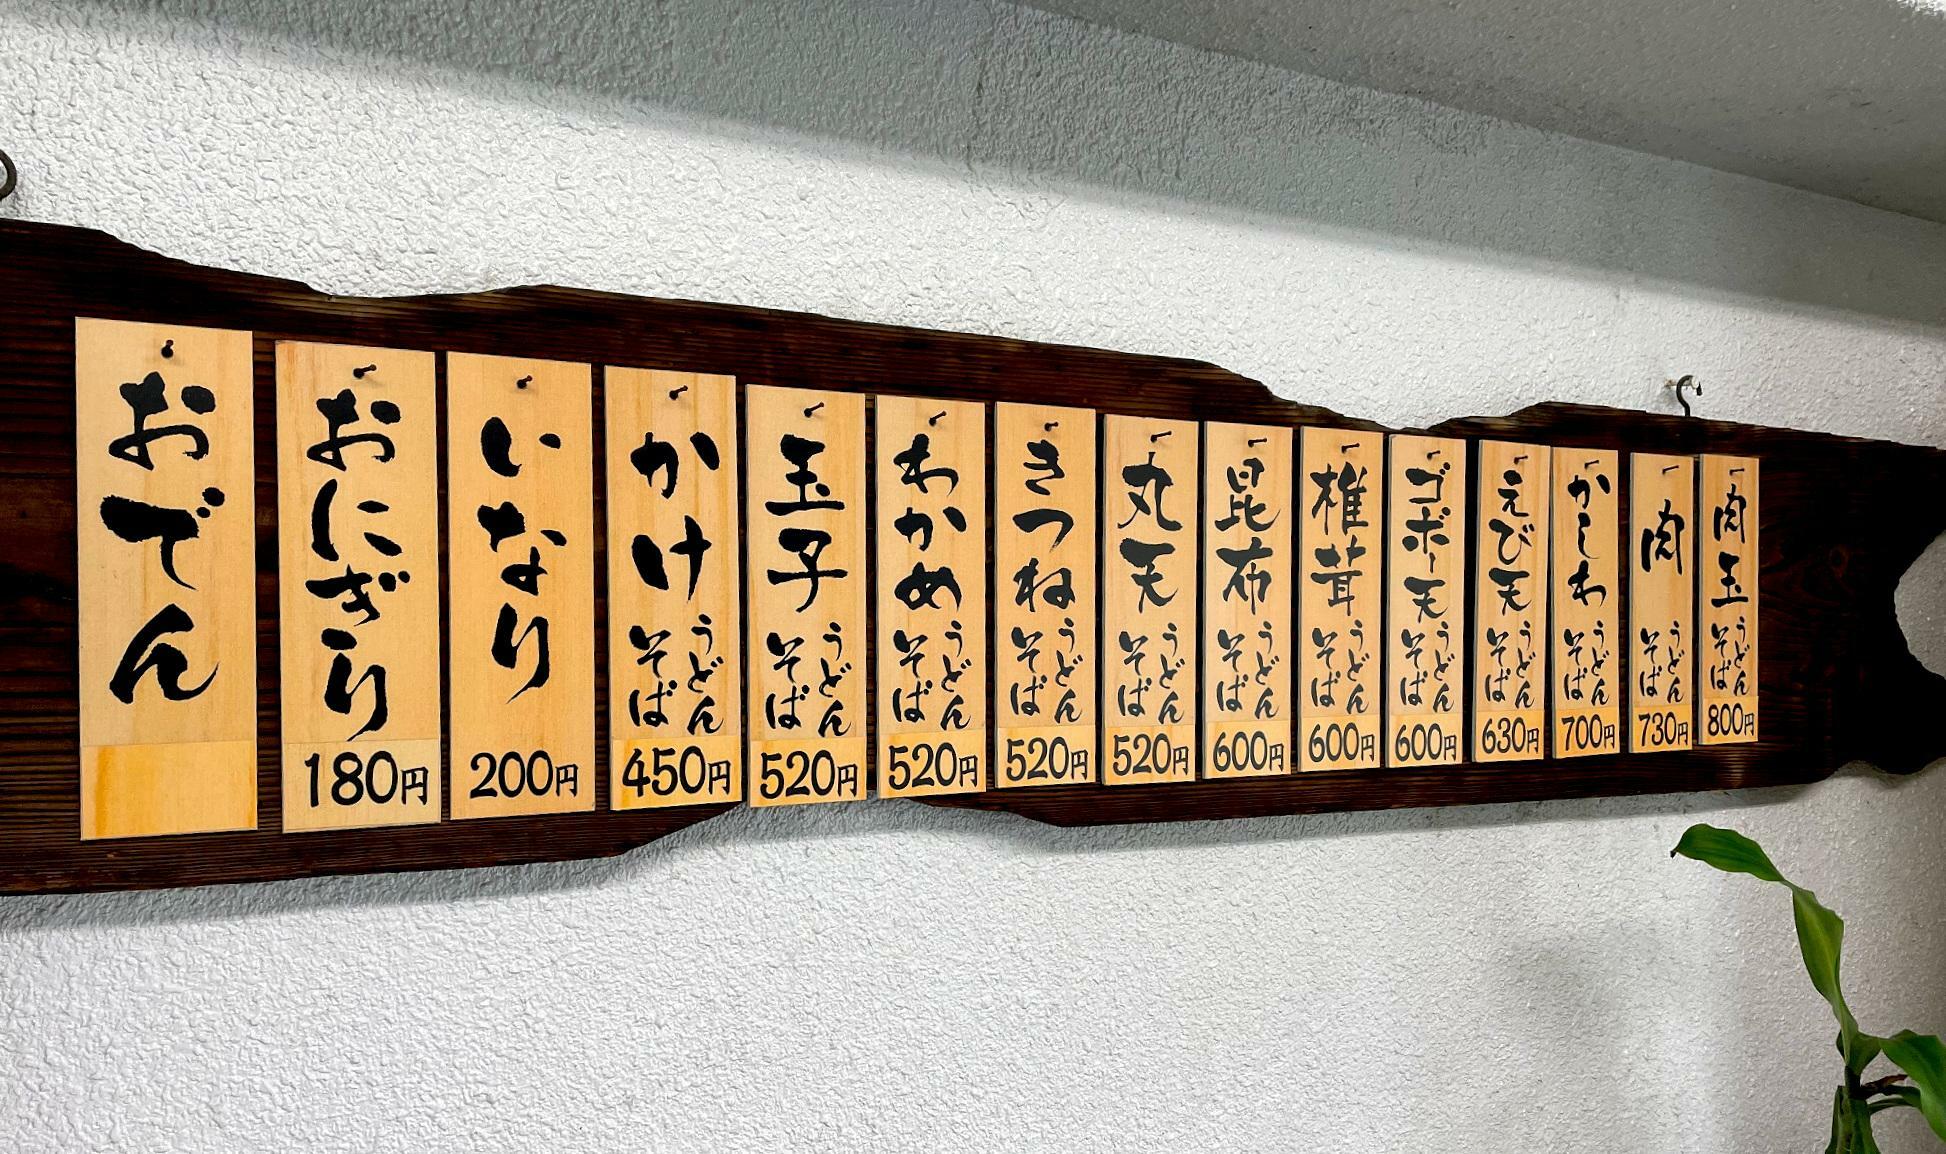 おでん
おにぎり
180円
いなり
200円
かけ
うどん
そば
450円
玉子
うどん
そば
520円
わかめ
うどん
そば
520円
きつね
うどん
そば
520円
丸天
うどん
そば
520円
昆布
うどん
そば
600円
椎茸
うどん
そば
600円
ゴボー天
うどん
そば
600円
えび天
うどん
そば
630円
かしわ
うどん
そば
700円
肉
うどん
そば
730円
肉玉
うどん
そば
800円